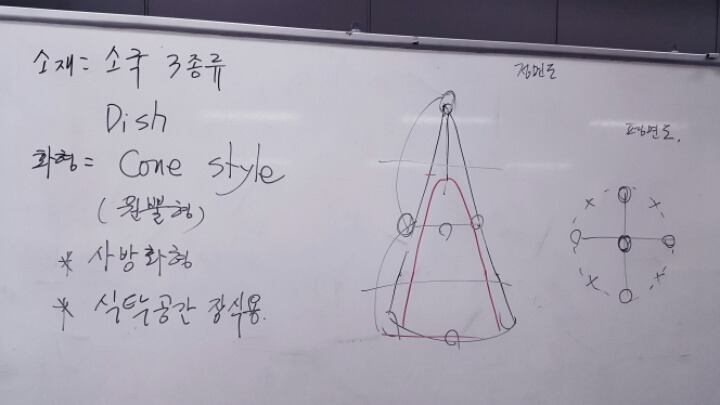 소재 = 소국 3종류
Dish
화형 = Cone style
(원뿔형)
* 사방화형
* 식탁공간 장식용.
정면도
평면도.